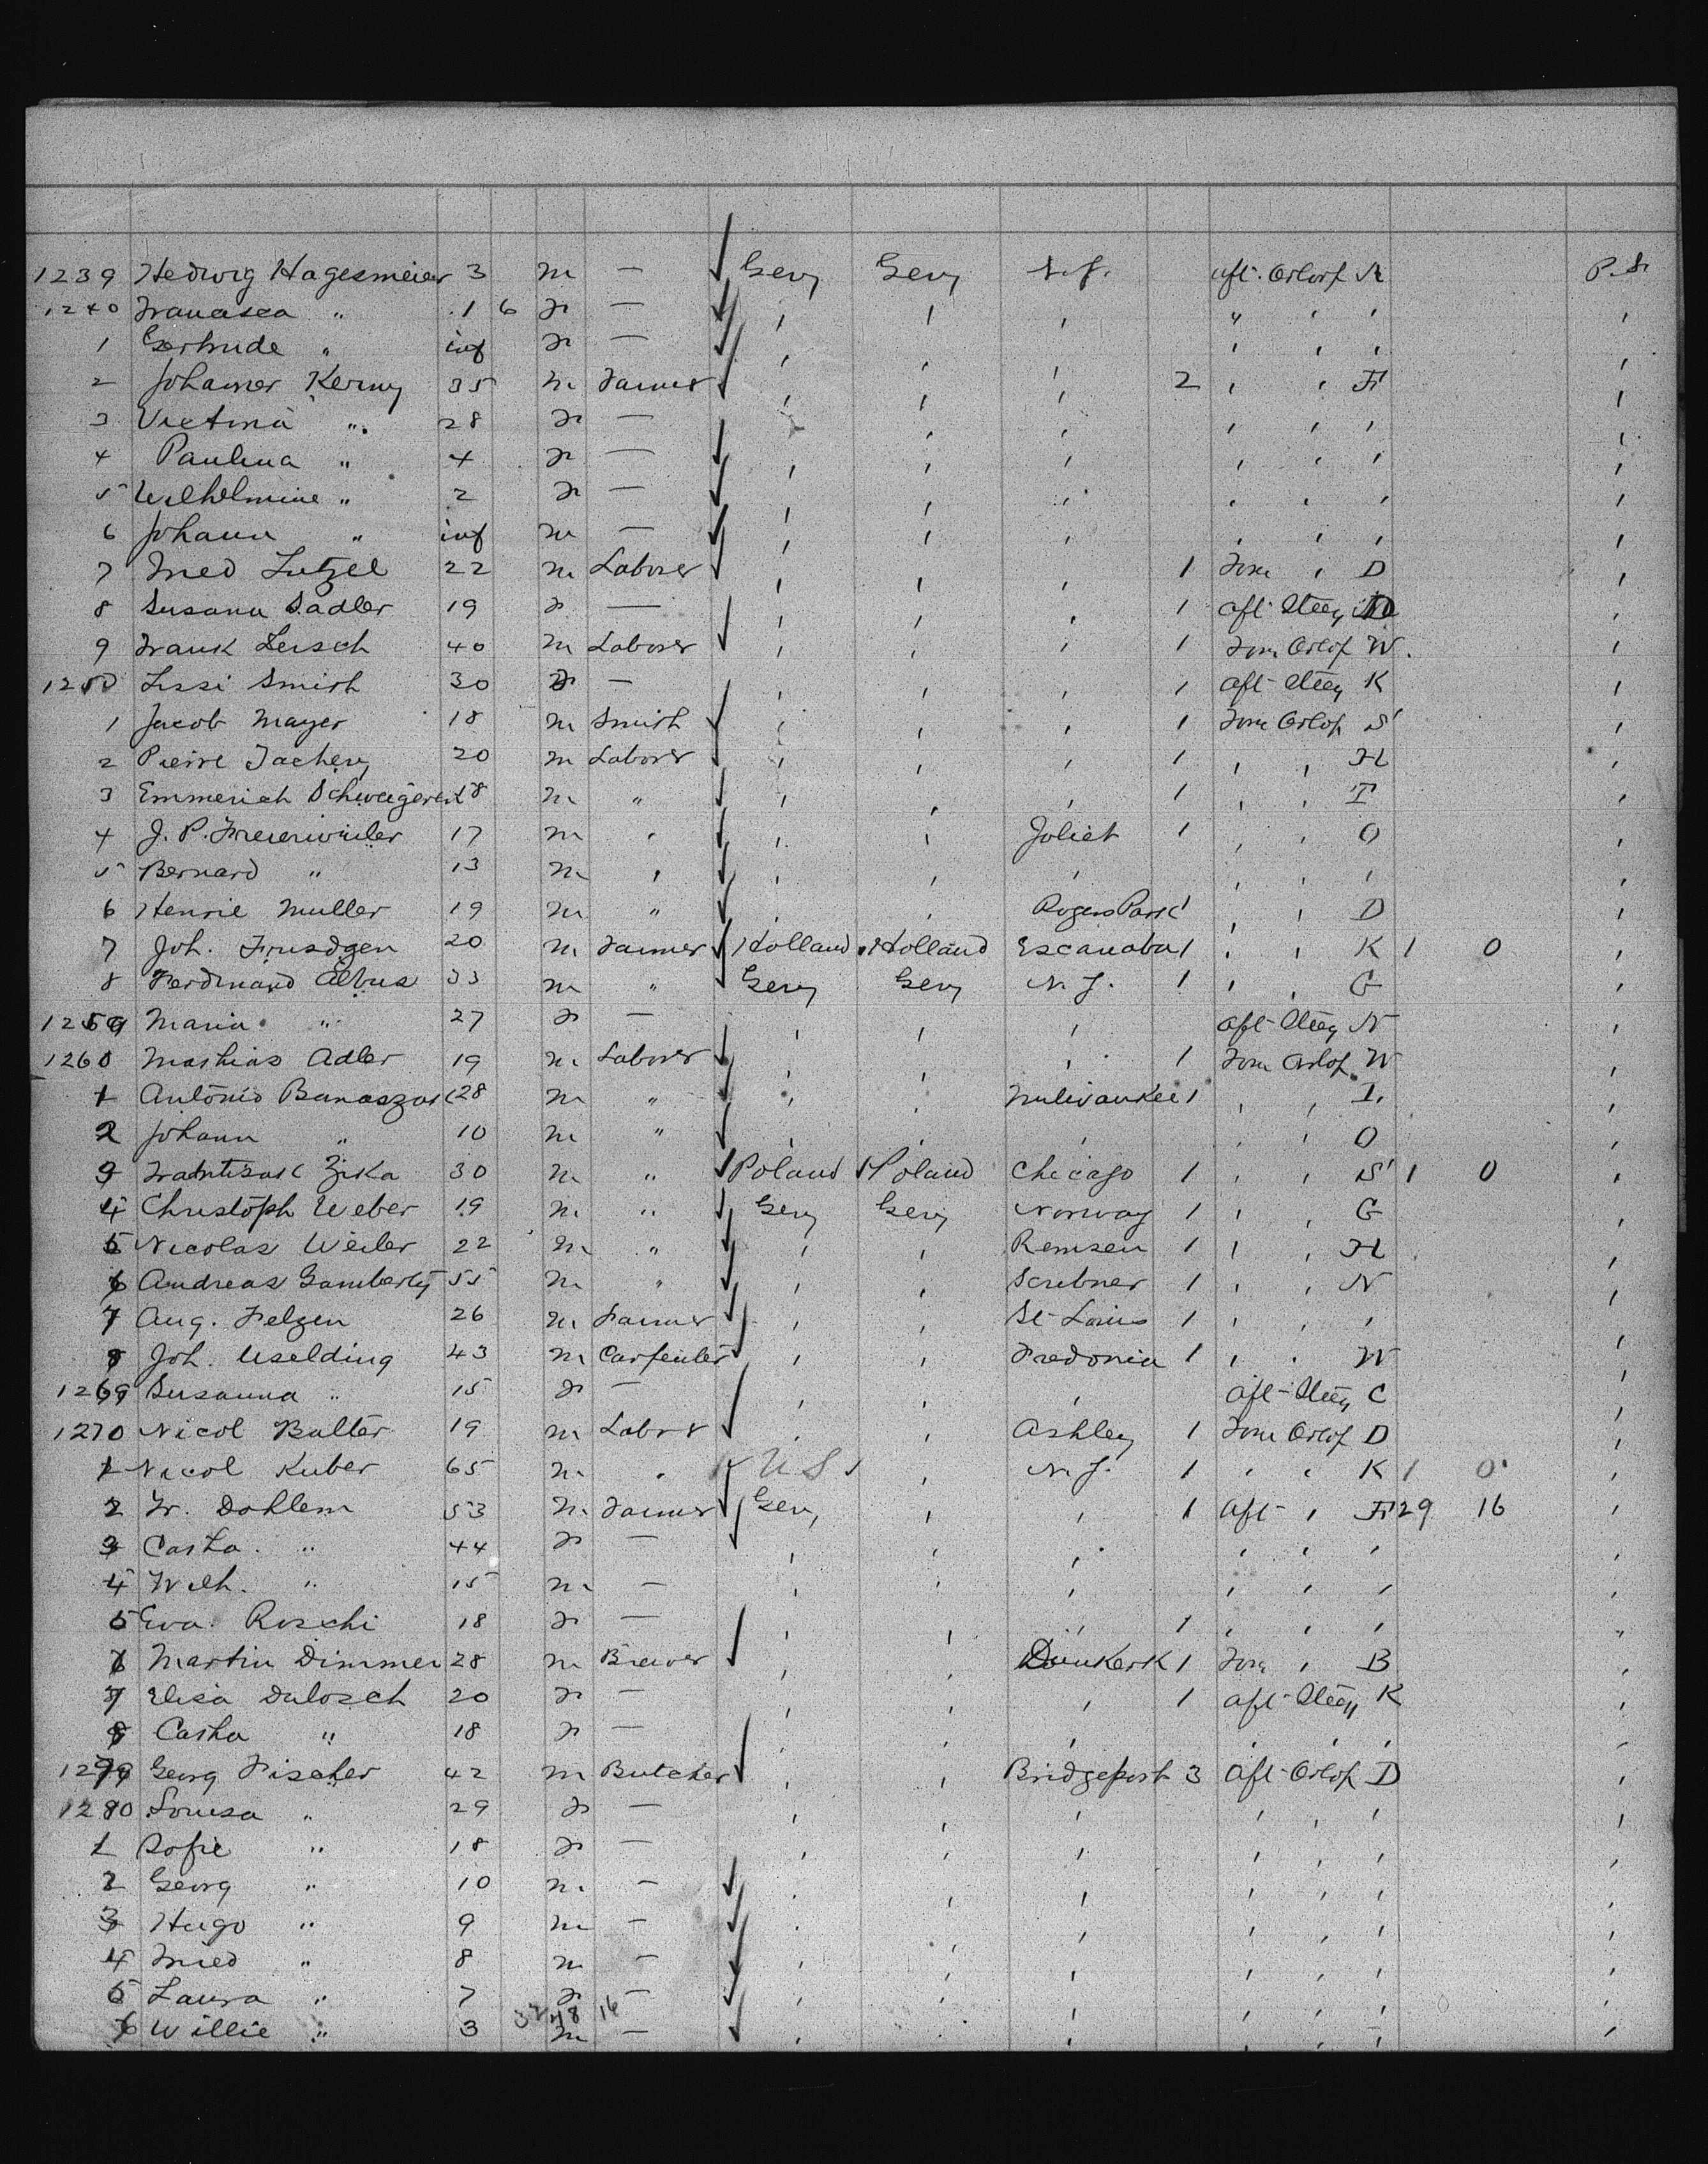 1239 Hedwig Hagesmeier 3 m — Gery Gery N.J. aft. Orlop N P.S.
1240 Francisca " 1 6 F — , , , " , , ,
1 Gertrude " inf F — , , , , , , ,
2 Johames Kerny 35 m Farmer , , , 2 , , F ,
3 Victina " 28 F — , , , , , , ,
4 Paulina " 4 F — , , , , , , ,
5 Wilhelmine " 2 F — , , , , , , ,
6 Johann " inf m — , , , , , , ,
7 Fried Lutzel 22 m Laborer , , , 1 Forw , D ,
8 Susana Sadler 19 F — , , , 1 aft Steeg ,
9 Frank Lersch 40 m Laborer , , , 1 Forw Orlop W. ,
1250 Lissi Smith 30 F — , , , 1 aft Steeg K ,
1 Jacob Mayer 18 m Smith , , , 1 Forw Orlop S ,
2 Pierre Tachery 20 m Laborer , , , 1 , , H ,
3 Emmerich Schweigerert 18 m " , , , 1 , , T ,
4 J. P. Freierwieler 17 m , , , Joliet 1 , , O ,
5 Bernard " 13 m , , , , , , , ,
6 Henrie Muller 19 m " , , Rogers Park 1 , , D ,
7 Joh. Frusdgen 20 m Farmer Holland Holland Escanaba 1 , , K 1 0 ,
8 Ferdinand Elbus 33 m " Gery Gery N.J. 1 , , G ,
1259 Maria " 27 F — , , , aft Steeg N ,
1260 Mathias Adler 19 m Laborer , , , 1 Forw Orlop W ,
1 Antonio Banaszak 28 m " , , Milwaukee 1 , , I. ,
2 Johann " 10 m " , , , , , O ,
3 Frantisak Zika 30 m " Poland Poland Chicago 1 , , S 1 0 ,
4 Christoph Weber 19 m " Gery Gery Norway 1 , , G ,
5 Nicolas Weiler 22 m " , , Remsen 1 , , H ,
6 Andreas Gamberty 55 m " , , Scribner 1 , , N ,
7 Aug. Felzen 26 m Farmer , , St Louis 1 , , , ,
8 Joh. Uselding 43 m Carpenter , , Fredonia 1 , , W ,
1269 Susanna " 15 F — , , , aft Steeg C ,
1270 Nicol Butter 19 m Labor , , Ashley 1 Forw Orlop D ,
1 Nicol Kuber 65 m , U S , N.J. 1 , , K 1 0 ,
2 Fr. Dohlem 53 m Farmer Gery , , 1 aft , F 29 16 ,
3 Casha. " 44 F — , , , , , , ,
4 Wilh. " 15 m — , , , , , , ,
5 Eva. Roschi 18 F — , , , 1 , , , "
6 Martin Dimmer 28 m Brewer , , Dunkerk 1 Forw , B ,
7 Elisa Dulosch 20 F — , , , 1 aft Steeg K ,
8 Casha " 18 F — , , , , , , ,
1279 Georg Fischer 42 m Butcher , , Bridgeport 3 aft Orlop D ,
1280 Louisa " 29 F — , , , , , , ,
1 Sofie " 18 F — , , , , , , ,
2 Georg " 10 m — , , , , , , ,
3 Hugo " 9 m — , , , , , , ,
4 Fried " 8 m — , , , , , , ,
5 Laura " 7 F — , , , , , , ,
6 Willie " 3 m — , , , , , , ,